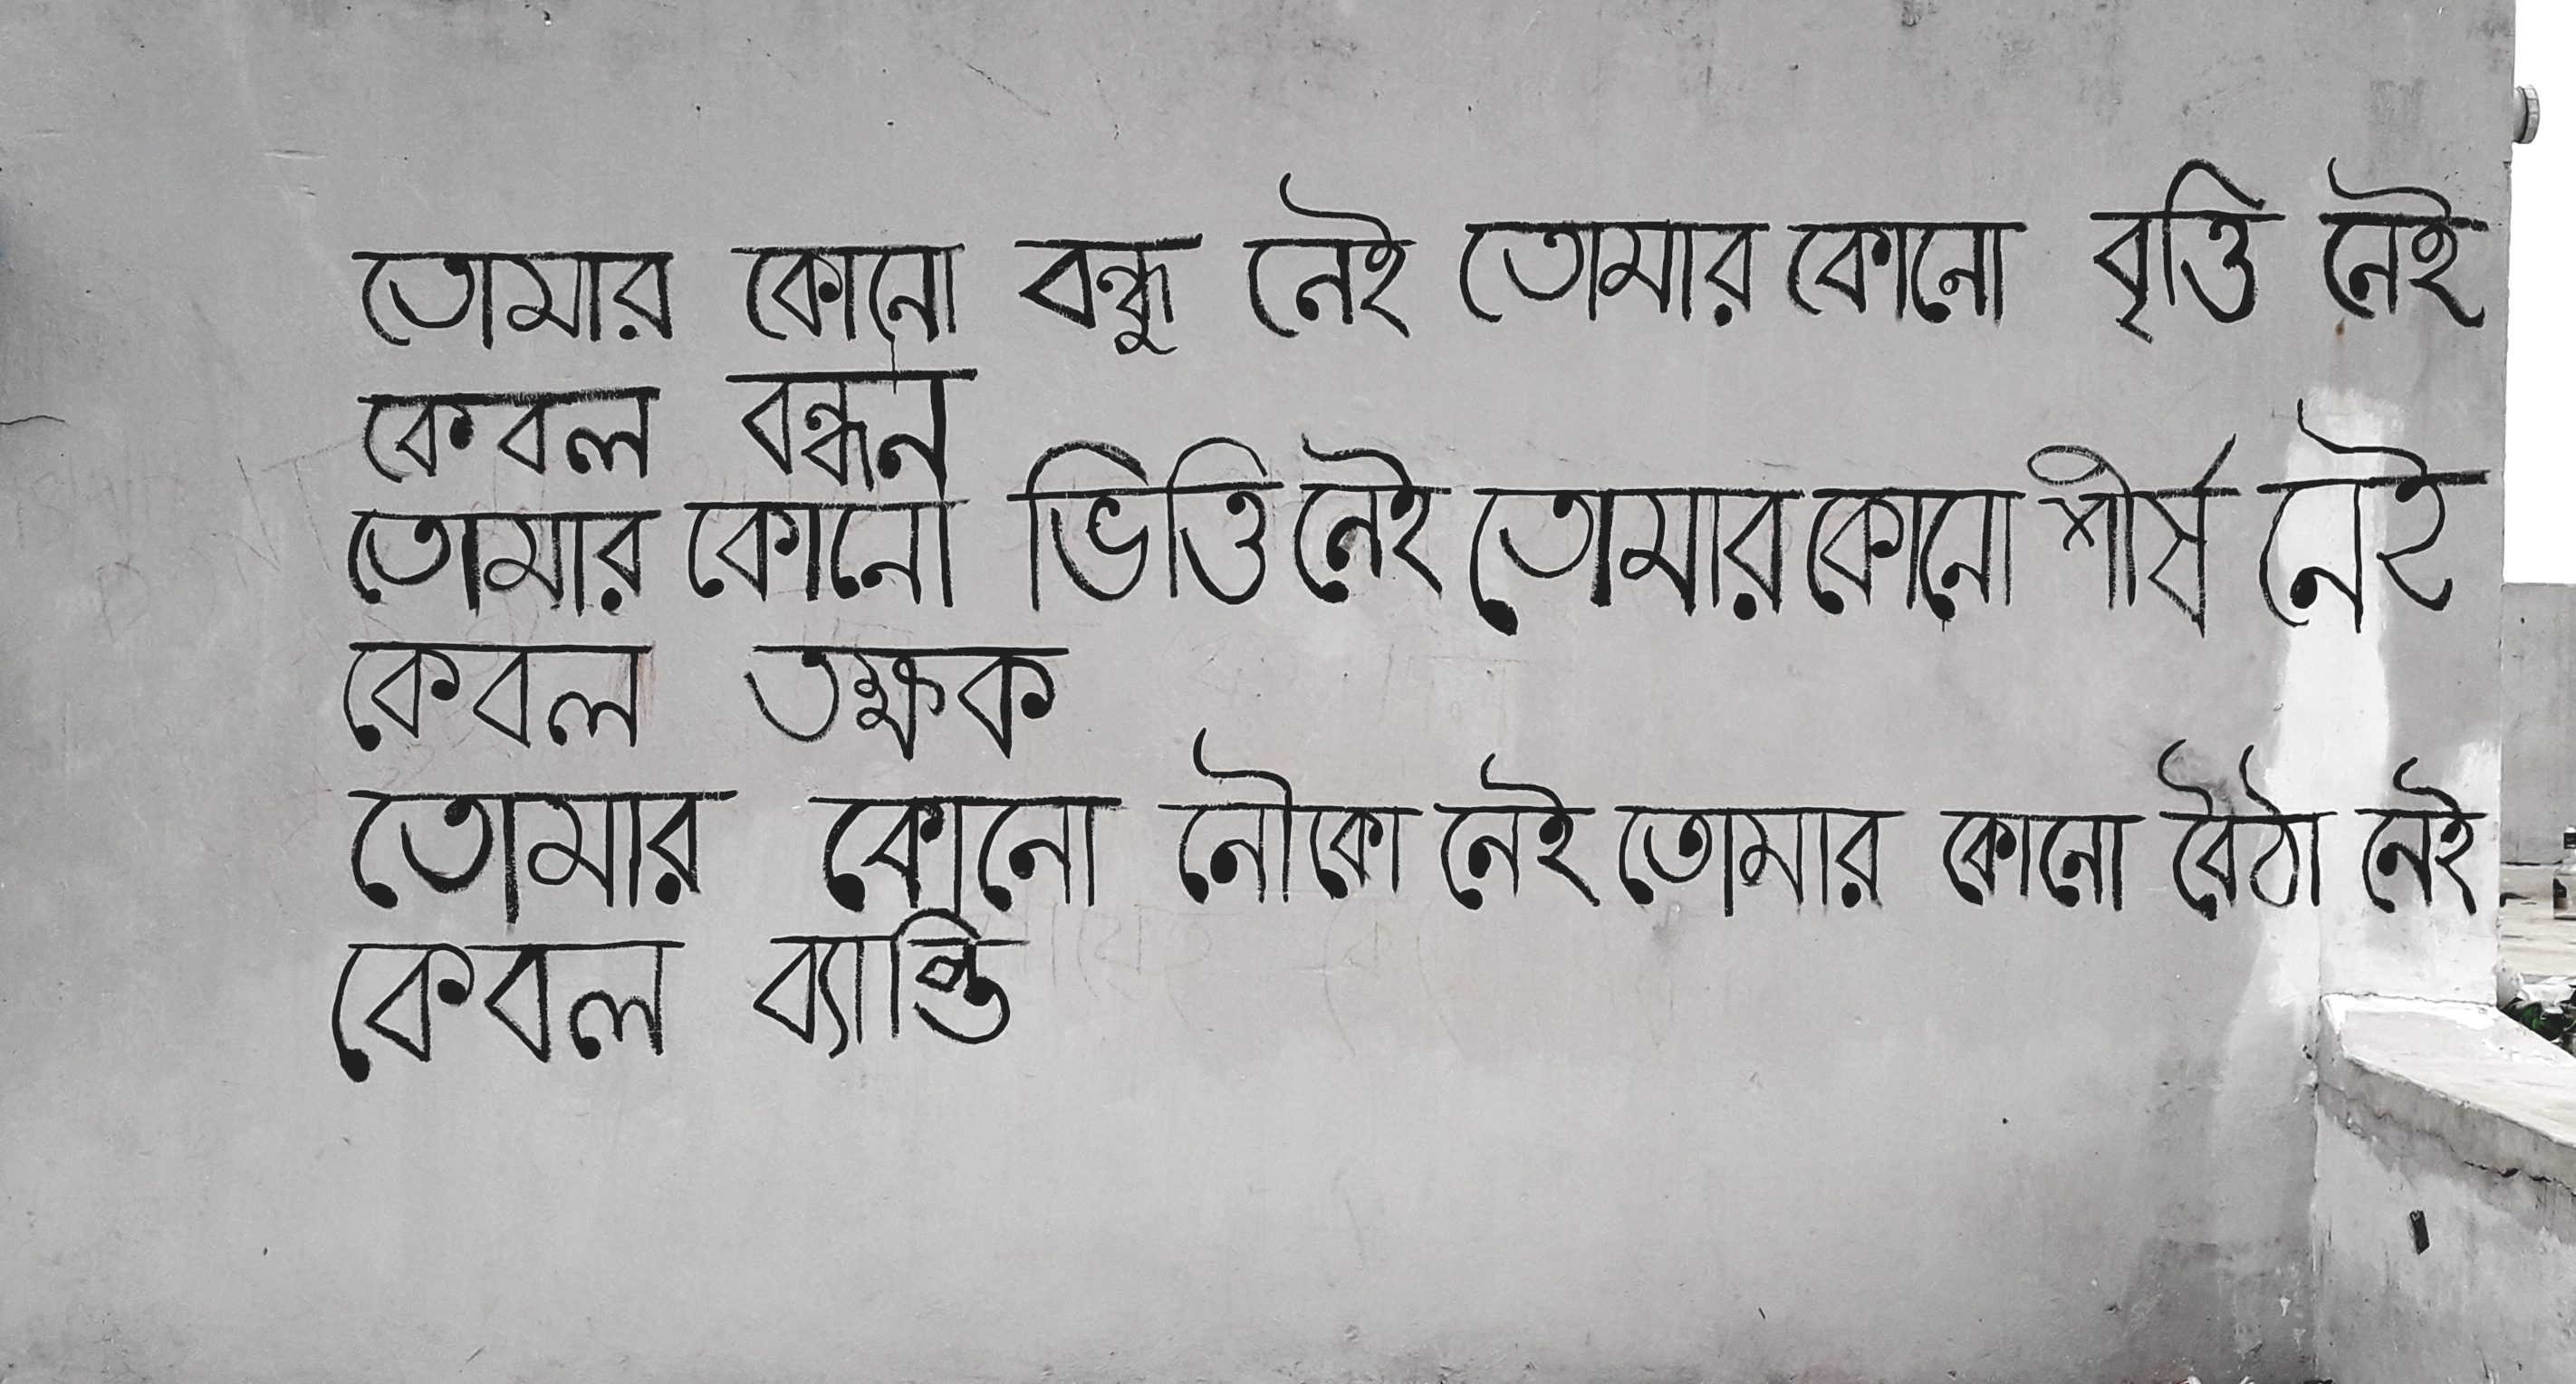 তোমার কোনো বন্ধু নেই তোমার কোনো বৃত্তি নেই
কেবল বন্ধন
তোমার কোনো ভিত্তি নেই তোমার কোনো শীর্ষ নেই
কেবল তক্ষক
তোমার কোনো নৌকো নেই তোমার কোনো বৈঠা নেই
কেবল ব্যাপ্তি